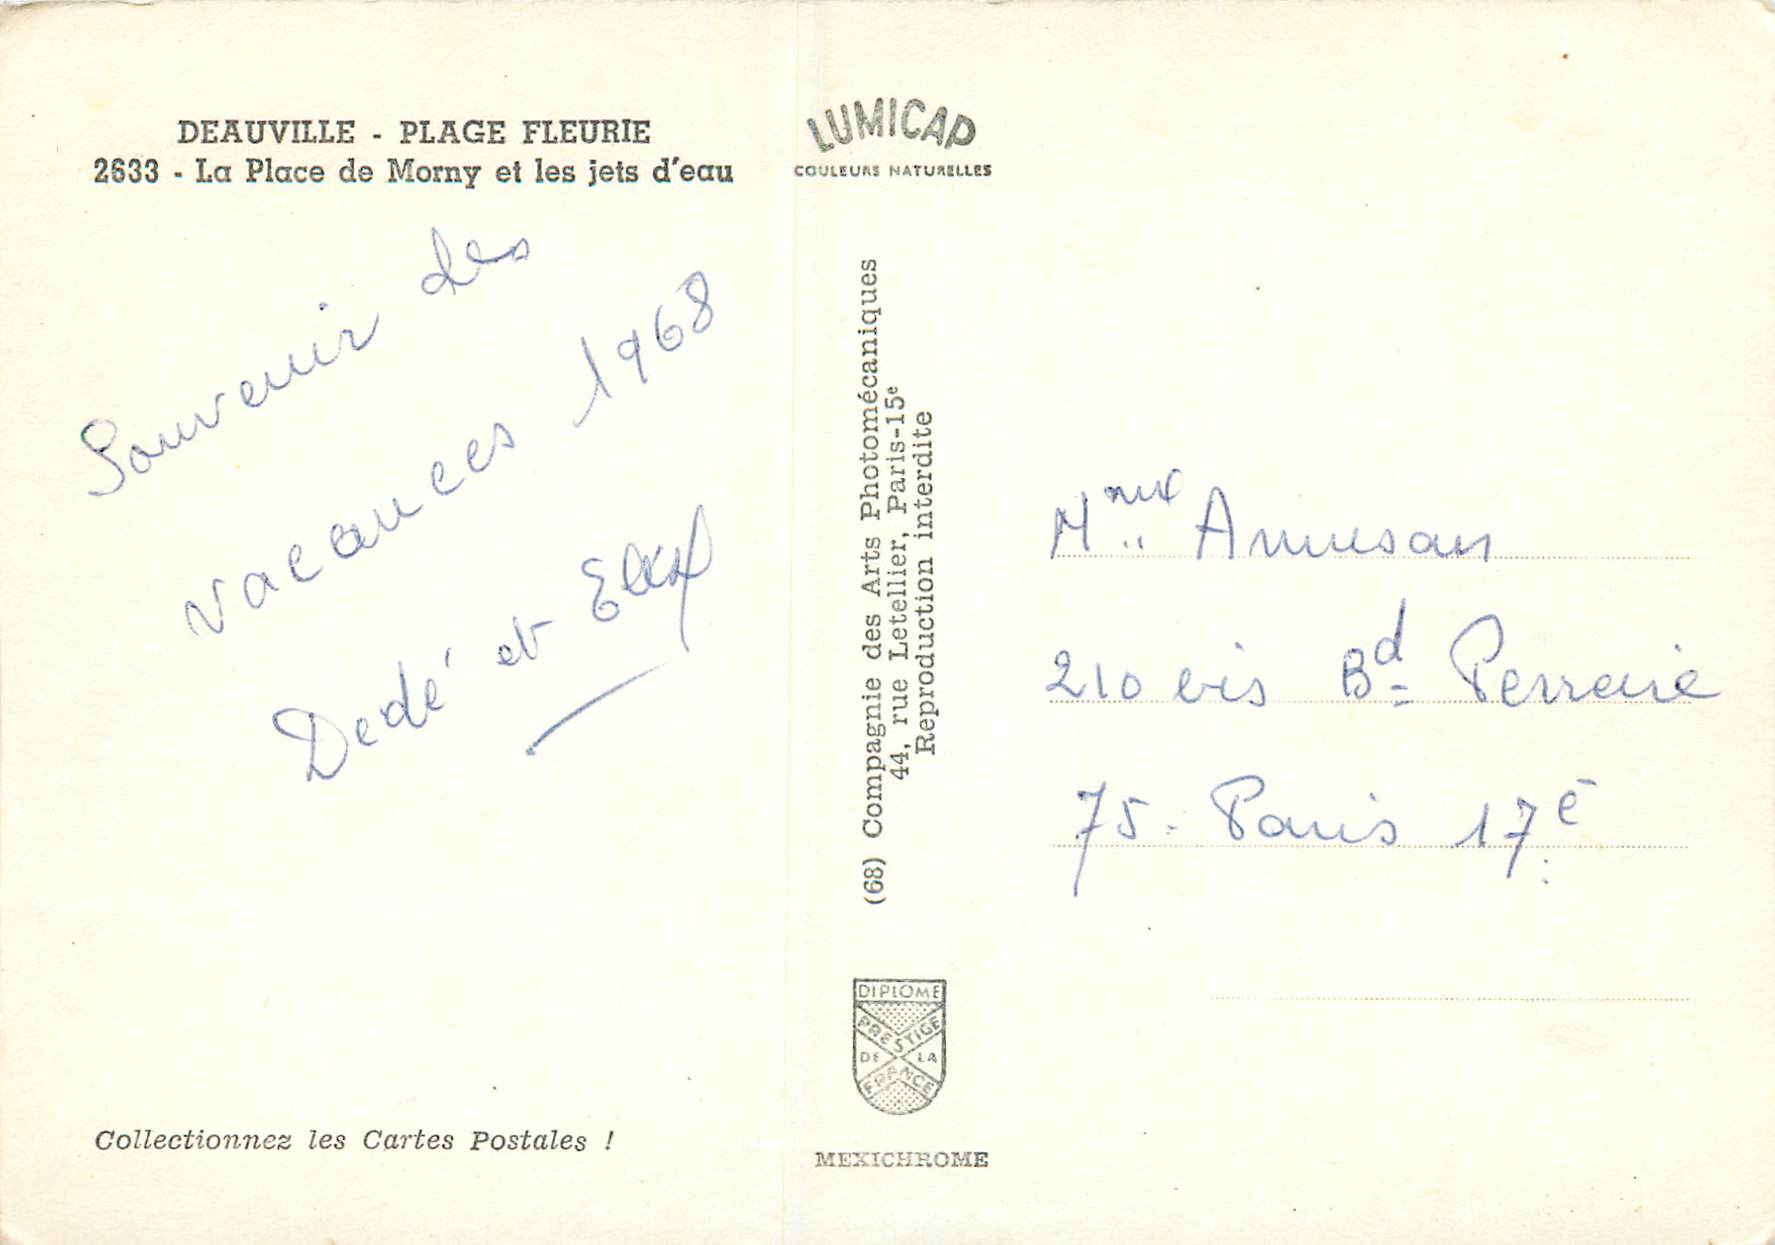 DEAUVILLE - PLAGE FLEURIE
2633 - La Place de Morny et les jets d'eau
Souvenir des
vacances 1968
Dedé et
LUMICAP
COULEURS NATURELLES
(68) Compagnie des Arts Photomécaniques
44, rue Letellier, Paris-15e
Reproduction interdite
DIPLOME
PRESTIGE
DE LA
FRANCE
MEXICHROME
210 bis Bd Perreire
75. Paris 17e
Collectionnez les Cartes Postales !